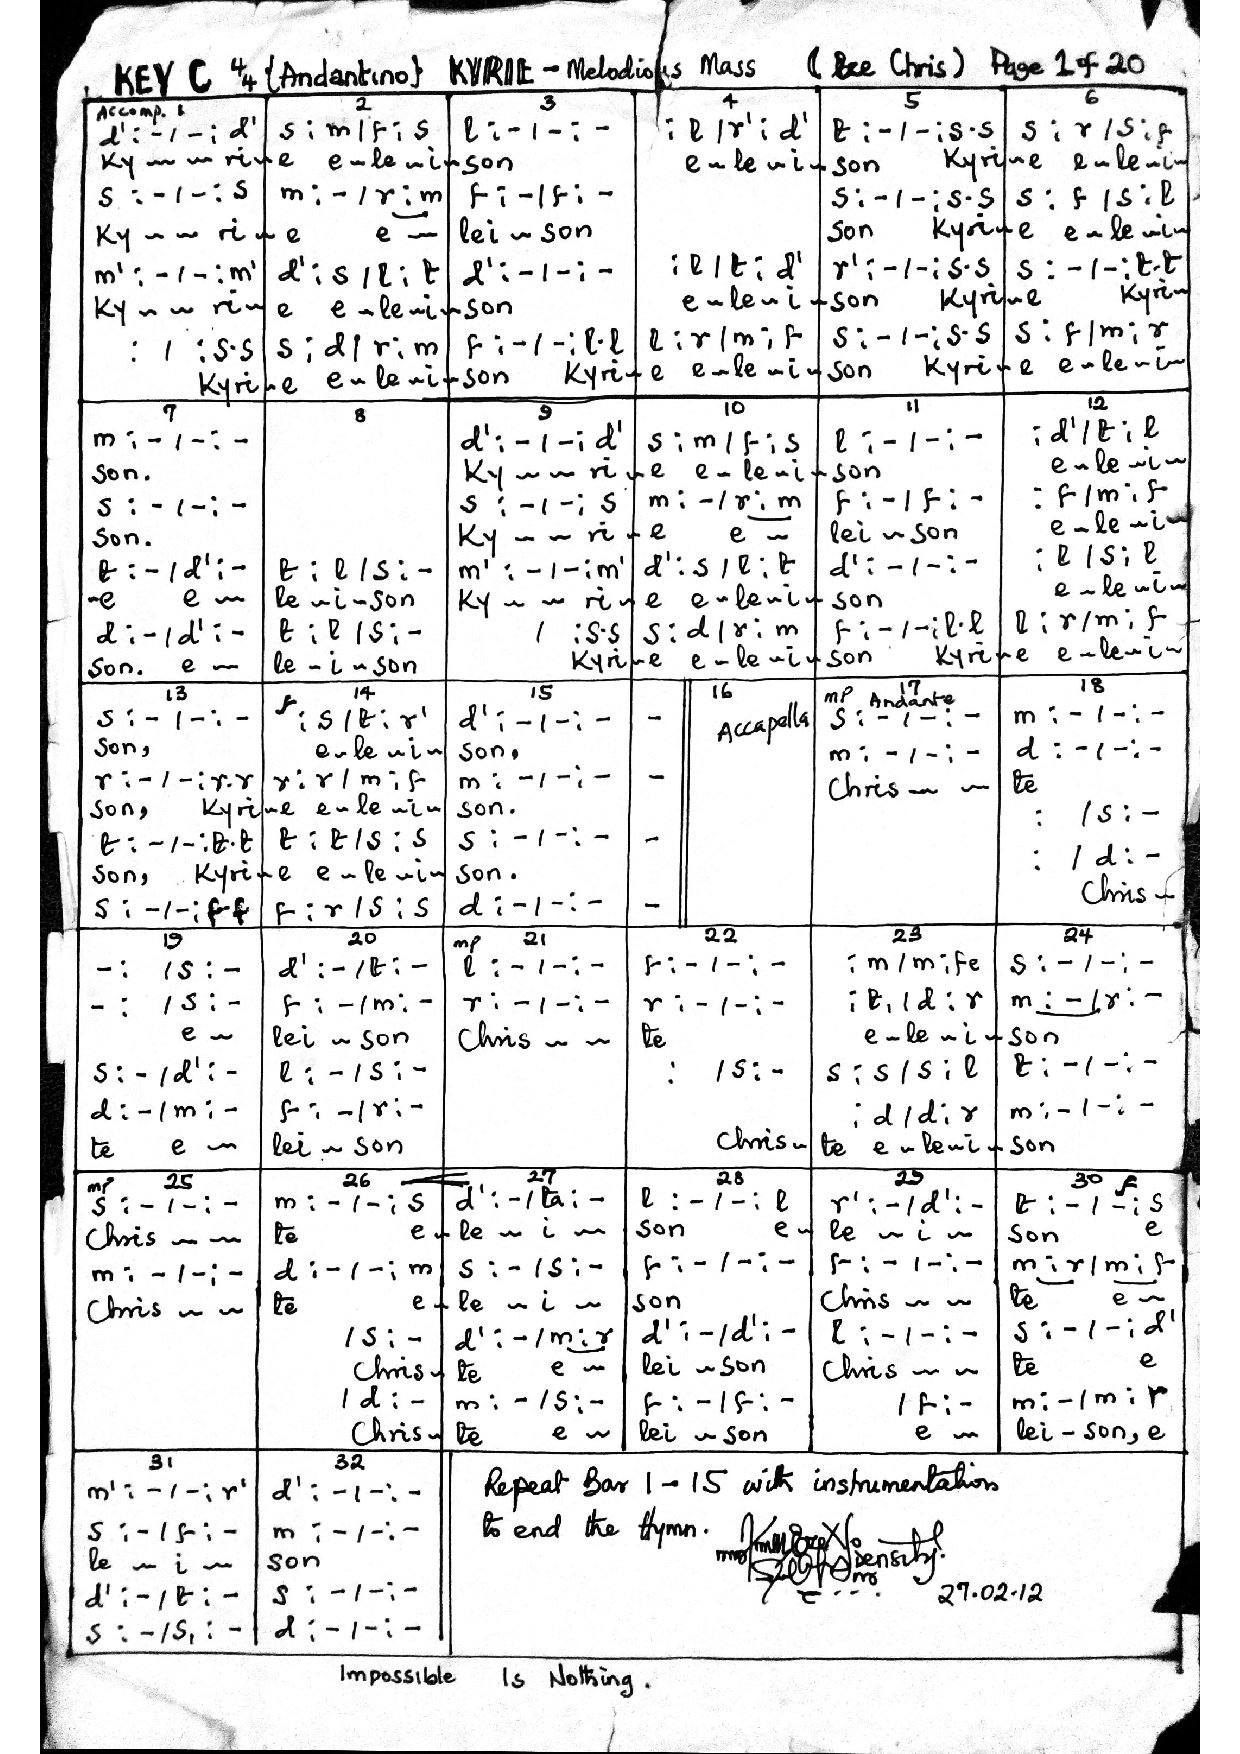 KEY C 4/4 {Andantino} KYRIE - Melodious Mass (Eze Chris) Page 1 of 20
Accomp. 2 3 4 5 6
d' : - / - : d' s : m / f : s l : - / - : - : l / r' : d' t : - / - : s.s s : r / s : f
Ky ~ ~ ri ~ e e ~ le ~ i ~ son e ~ le ~ i ~ son Kyri ~ e e ~ le ~ i ~
s : - / - : s m : - / r : m f : - / f : - s : - / - : s.s s : f / s : l
Ky ~ ~ ri ~ e e ~ lei ~ son son Kyri ~ e e ~ le ~ i ~
m' : - / - : m' d' : s / l : t d' : - / - : - : l / t : d' r' : - / - : s.s s : - / - : t.t
Ky ~ ~ ri ~ e e ~ le ~ i ~ son e ~ le ~ i ~ son Kyri ~ e Kyri ~
: / : s.s s : d / r : m f : - / - : l.l l : r / m : f s : - / - : s.s s : f / m : r
Kyri ~ e e ~ le ~ i ~ son Kyri ~ e e ~ le ~ i ~ son Kyri ~ e e ~ le ~ i ~
7 8 9 10 11 12
m : - / - : - d' : - / - : d' s : m / f : s l : - / - : - : d' / t : l
son. Ky ~ ~ ri ~ e e ~ le ~ i ~ son e ~ le ~ i ~
s : - / - : - s : - / - : s m : - / r : m f : - / f : - : f / m : f
son. Ky ~ ~ ri ~ e e ~ lei ~ son e ~ le ~ i ~
t : - / d' : - t : l / s : - m' : - / - : m' d' : s / l : t d' : - / - : - : l / s : l
~e e ~ le ~ i ~ son Ky ~ ~ ri ~ e e ~ le ~ i ~ son e ~ le ~ i ~
d : - / d' : - t : l / s : - / : s.s s : d / r : m f : - / - : l.l l : r / m : f
son. e ~ le - i ~ son Kyri ~ e e ~ le ~ i ~ son Kyri ~ e e ~ le ~ i ~
13 14 15 16 17 18
mp Andante
s : - / - : - f : s / t : r' d' : - / - : - - Accapella s : - / - : - m : - / - : -
son, e ~ le ~ i ~ son, m : - / - : - d : - / - : -
r : - / - : r.r r : r / m : f m : - / - : - - Chris ~ ~ te
son, Kyri ~ e e ~ le ~ i ~ son. : / s : -
t : - / - : t.t t : t / s : s s : - / - : - - : / d : -
son, Kyri ~ e e ~ le ~ i ~ son. Chris ~
s : - / - : f f f : r / s : s d : - / - : - -
19 20 mp 21 22 23 24
- : / s : - d' : - / t : - l : - / - : - f : - / - : - : m / m : fe s : - / - : -
- : / s : - f : - / m : - r : - / - : - r : - / - : - : t, / d : r m : - / r : -
e ~ lei ~ son Chris ~ ~ te e ~ le ~ i ~ son
s : - / d' : - l : - / s : - : / s : - s : s / s : l t : - / - : -
d : - / m : - f : - / r : - : d / d : r m : - / - : -
te e ~ lei ~ son Chris ~ te e ~ le ~ i ~ son
mp 25 26 27 28 29 30 f
s : - / - : - m : - / - : s d' : - / ta : - l : - / - : l r' : - / d' : - t : - / - : s
Chris ~ ~ te e ~ le ~ i ~ son e ~ le ~ i ~ son e
m : - / - : - d : - / - : m s : - / s : - f : - / - : - f : - / - : - m : r / m : f
Chris ~ ~ te e ~ le ~ i ~ son Chris ~ ~ te e ~
/ s : - d' : - / m : r d' : - / d' : - l : - / - : - s : - / - : d'
Chris ~ te e ~ lei ~ son Chris ~ ~ te e
/ d : - m : - / s : - f : - / f : - / f : - m : - / m : r
Chris ~ te e ~ lei ~ son e ~ lei - son, e
31 32
m' : - / - : r' d' : - / - : - Repeat Bar 1 - 15 with instrumentation
s : - / f : - m : - / - : - to end the Hymn.
le ~ i ~ son
d' : - / t : - s : - / - : - 27.02.12
s : - / s, : - d : - / - : -
Impossible Is Nothing.